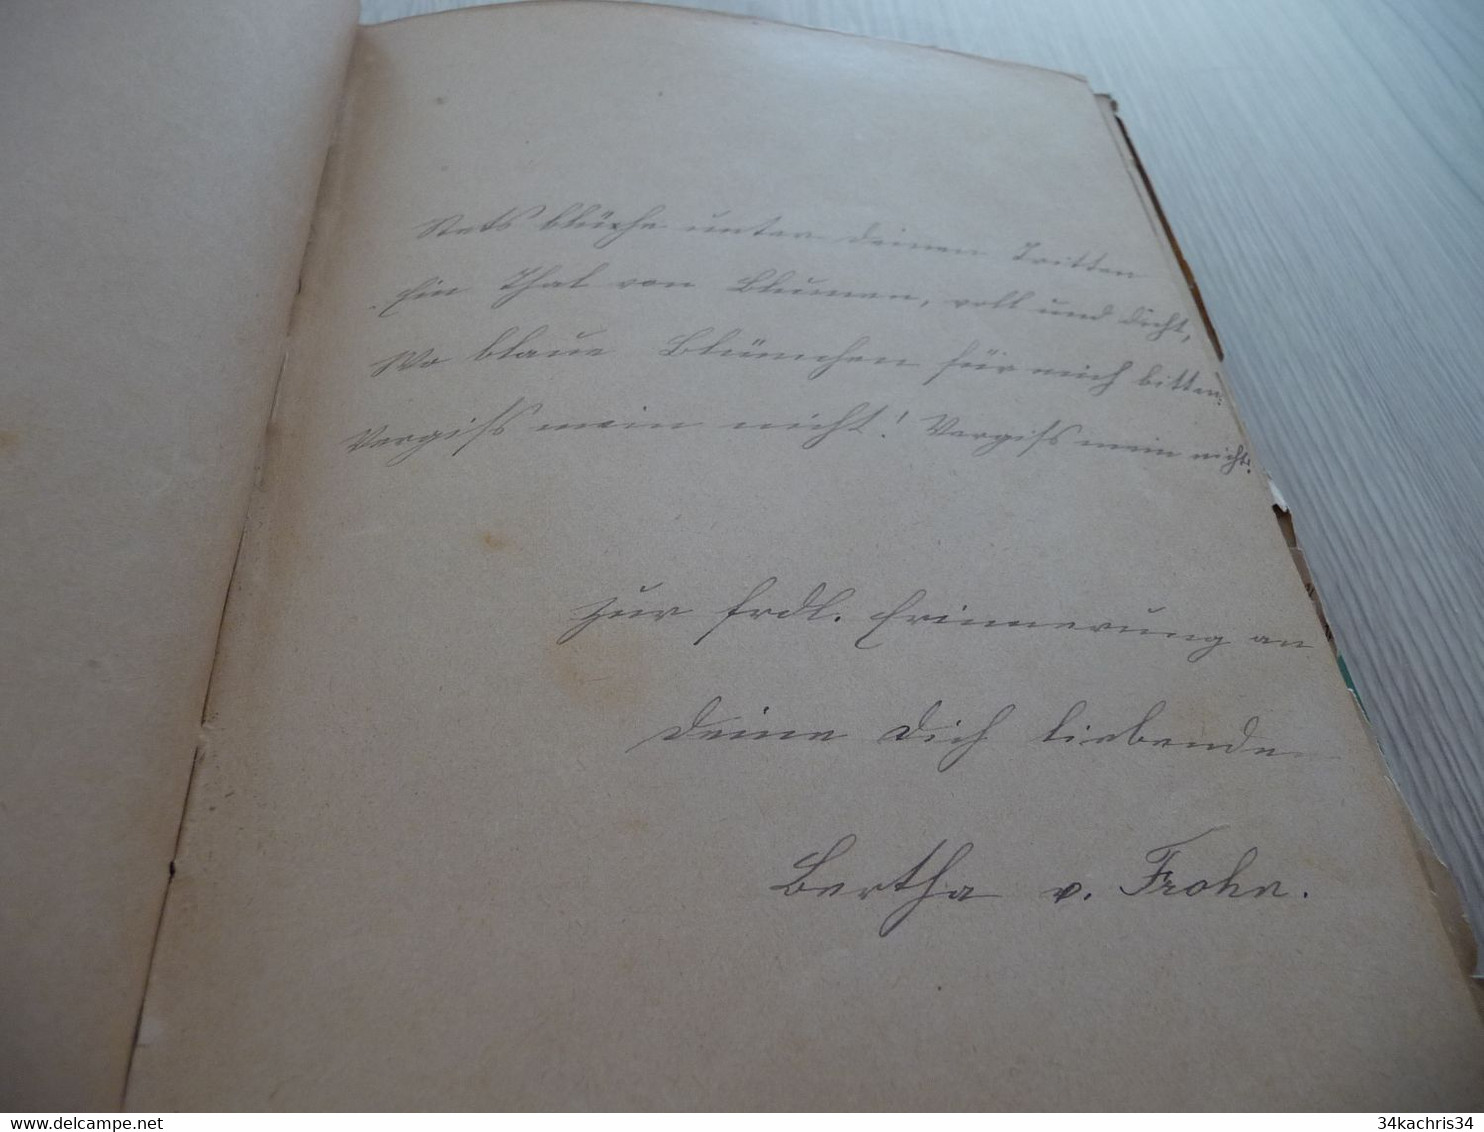 Stets blühe unter deinen Tritten
Ein Thal von Blumen, voll und dicht,
Wo blaue Blümchen für mich bitten:
Vergiß mein nicht! Vergiß mein nicht!
Zur frdl. Erinnerung an
Deine Dich liebende
Bertha v. Frohn.
www.delcampe.net
34kachris34